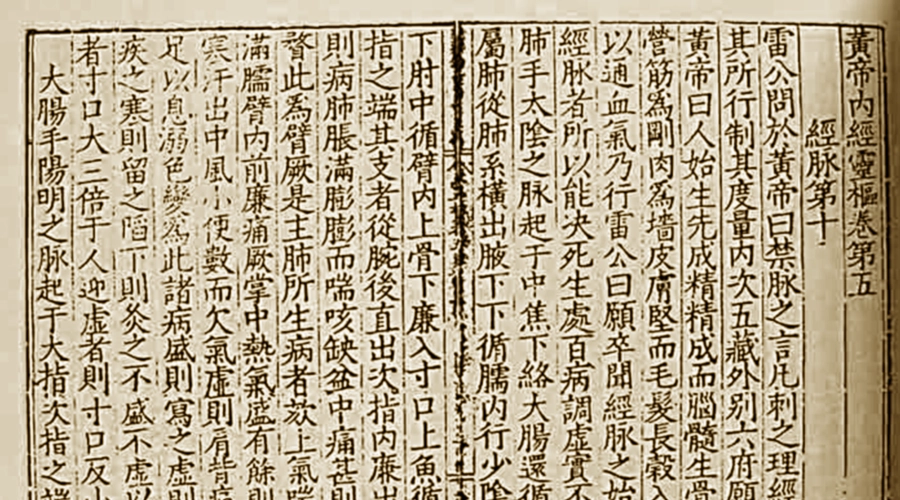 黃帝內經靈樞卷第五
經脉第十
雷公問於黃帝曰禁脉之言凡刺之理經
其所行制其度量內次五藏外別六府願
黃帝曰人始生先成精精成而腦髓生骨
營筋爲剛肉爲墻皮膚堅而毛髮長穀入
以通血氣乃行雷公曰願卒聞經脉之始
經脉者所以能决死生處百病調虛實不
肺手太陰之脉起于中焦下絡大腸還循
屬肺從肺系橫出腋下下循臑內行少陰
下肘中循臂內上骨下廉入寸口上魚循
指之端其支者從腕後直出次指內廉出
則病肺脹滿膨膨而喘咳缺盆中痛甚則
瞀此為臂厥是主肺所生病者欬上氣喘
滿臑臂內前廉痛厥掌中熱氣盛有餘則
寒汗出中風小便數而欠氣虛則肩背
足以息溺色變爲此諸病盛則寫之虛則
疾之寒則留之陷下則灸之不盛不虛以
者寸口大三倍于人迎虛者則寸口反
大腸手陽明之脉起于大指次指之